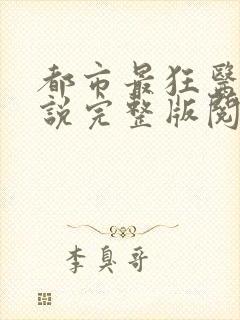 都市最狂醫
說完整版閱
李臭哥